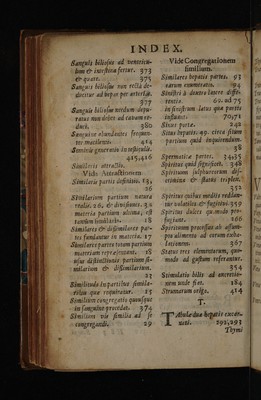 INDEX.
Sanguis biliosus ad ventriculum
& intestina fertur. 373
& quare. 375
Sanguis biliosus non rectà deducitur
ad hepar per arterias.
377
Sanguis biliosus nondum depuratus
num debet ad cavam reduci.
380
Sanguine abundantes frequenter
macilenti. 414
Seminis generatio in testiculis.
415,416
Similaris attractio.
Vide Attractionem
Similaris partis definitio. 134
26
Similarium partium natura
26, & divisiones. 32
materia partium altima, id
similaris. 18
Similares & dissimilares partes
fundantur in materia. 17
Similares partes totam partium
materiam repraesentant. 18
usus distinctionis partium similarium
& dissimilarium.
23
Similitudo in partibus similaribus
quae requiratur. 15
Similium congregatio quousque
in sanguine procedat. 374
Similium vis similia ad se
congregandi. 29
Vide Congregationem
similium.
Similares hepatis partes. 93
earum enumeratio. 94
Sinistri à dextro latere differentia.
69. ad 75
in sinistrum latus quae partes
inclinent. 70,71
Situs parte. 240
Situs hepatis: 49. circa situm
partium quid inquirendum.
38
Spermaticae partes. 34,35
Spiritus quid significet. 348
Spirituum
&
352
Spiritus quibus mediis vel
& fugetur. 359
Spiritus dulces quomodo profugiant.
266
Spirituum proventus ab assumpto
alimento ad eorum exhalationem.
367
Status trés elementorum, quomodo
ad gustum referantur.
354
Stimulatio bilis ad excretionem
unde fiat. 184
Strumarum origo. 414
T.
Tabulae duae hepatis excarnati.
292,293
Thymi